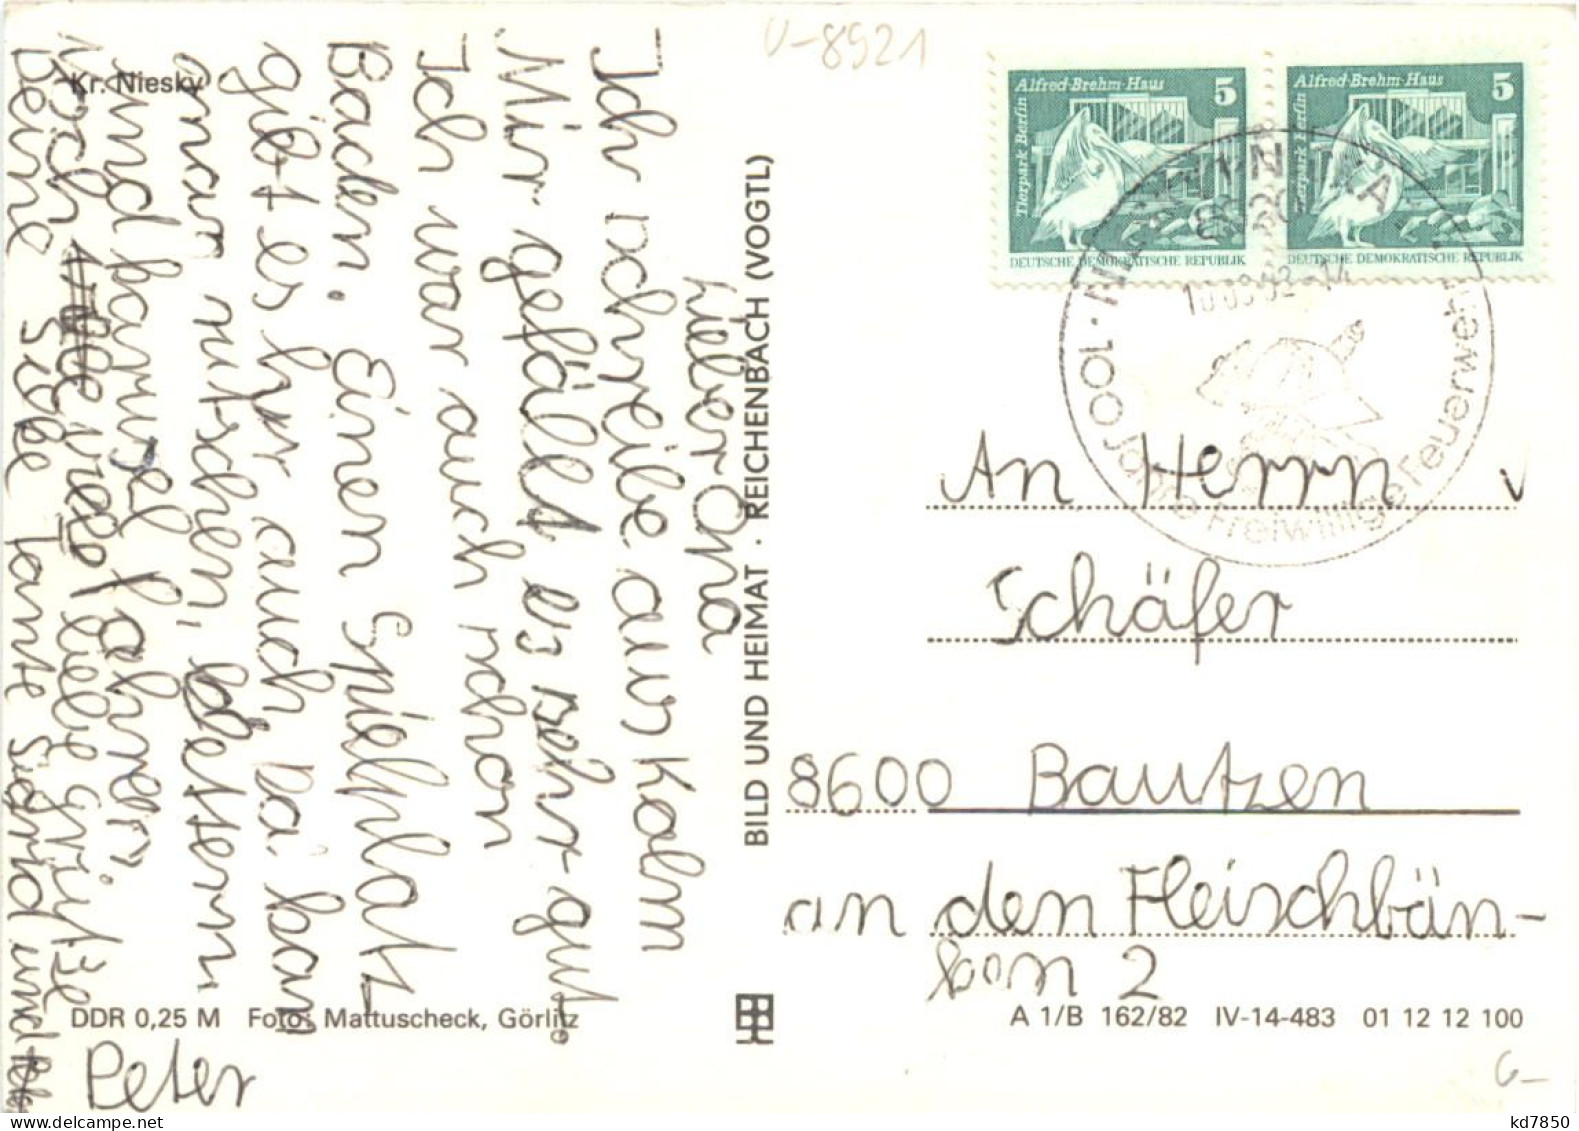 U-8921
Kr. Niesky
Lieber Opa
Ich schreibe aus Kolm
Mir gefällt es sehr gut.
Ich war auch schon
Baden. Einen Spielplatz
gibt es hir auch. Da kan
man rutschen, klettern
und karusel fahren.
Noch viele liebe Grüße
Deine Tante Sigrid und
Peter
BILD UND HEIMAT · REICHENBACH (VOGTL)
DDR 0,25 M Foto: Mattuscheck, Görlitz
Alfred-Brehm-Haus 5
Tierpark Berlin
DEUTSCHE DEMOKRATISCHE REPUBLIK
Alfred-Brehm-Haus 5
Tierpark Berlin
DEUTSCHE DEMOKRATISCHE REPUBLIK
100 Jahre Freiwillige Feuerwehr
An Herrn
Schäfer
8600 Bautzen
an den Fleischbän-
ken 2
A 1/B 162/82 IV-14-483 01 12 12 100
6-
kd7850